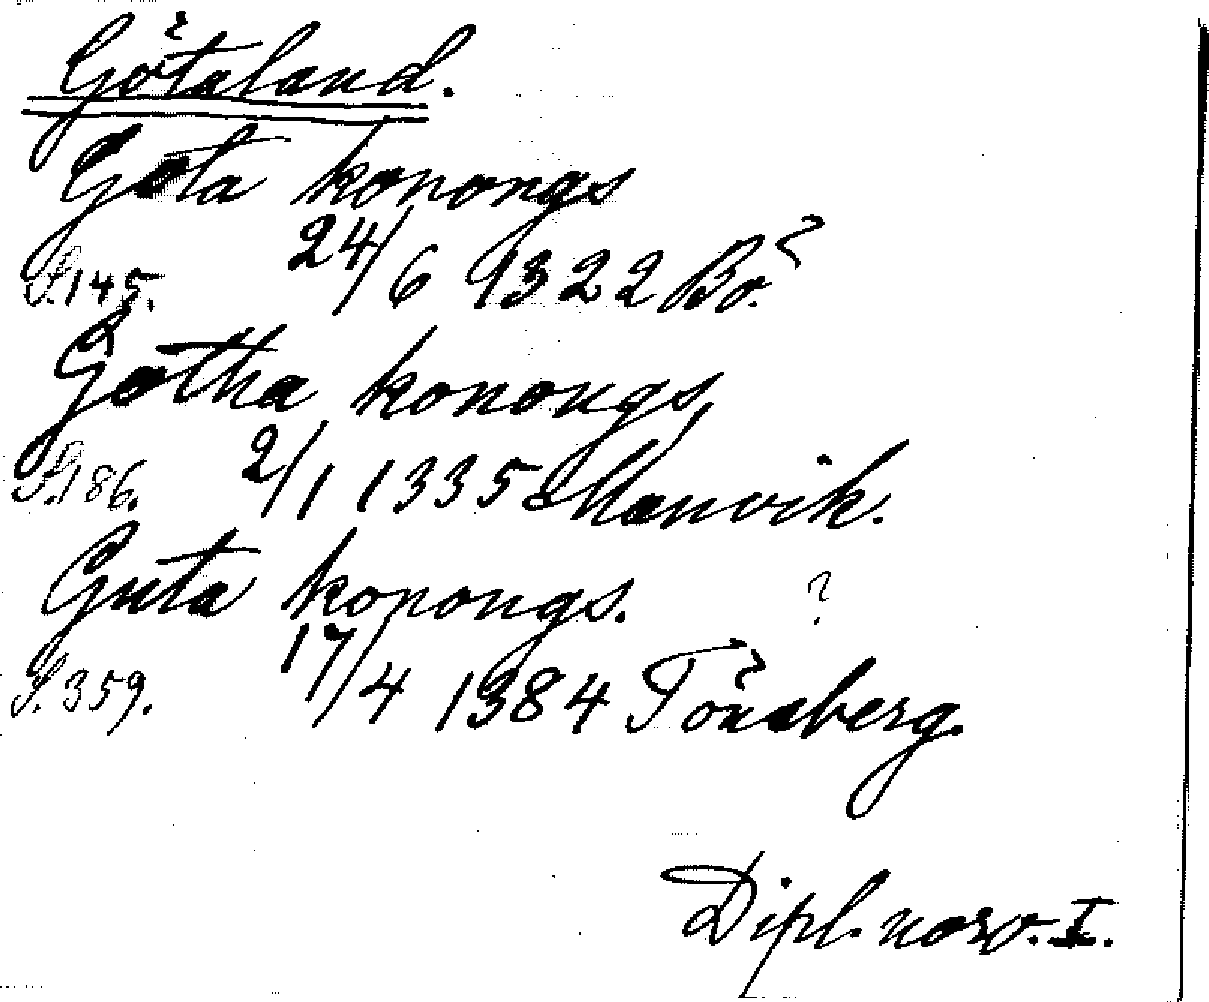 Götaland.
Gøta konongs
S. 145. 24/6 1322 Bö.
Gøtha konongs,
S. 186. 2/1 1335 Manvik.
Guta konongs. ?
S. 359. 17/4 1384 Tönsberg.
Dipl. norv. I.